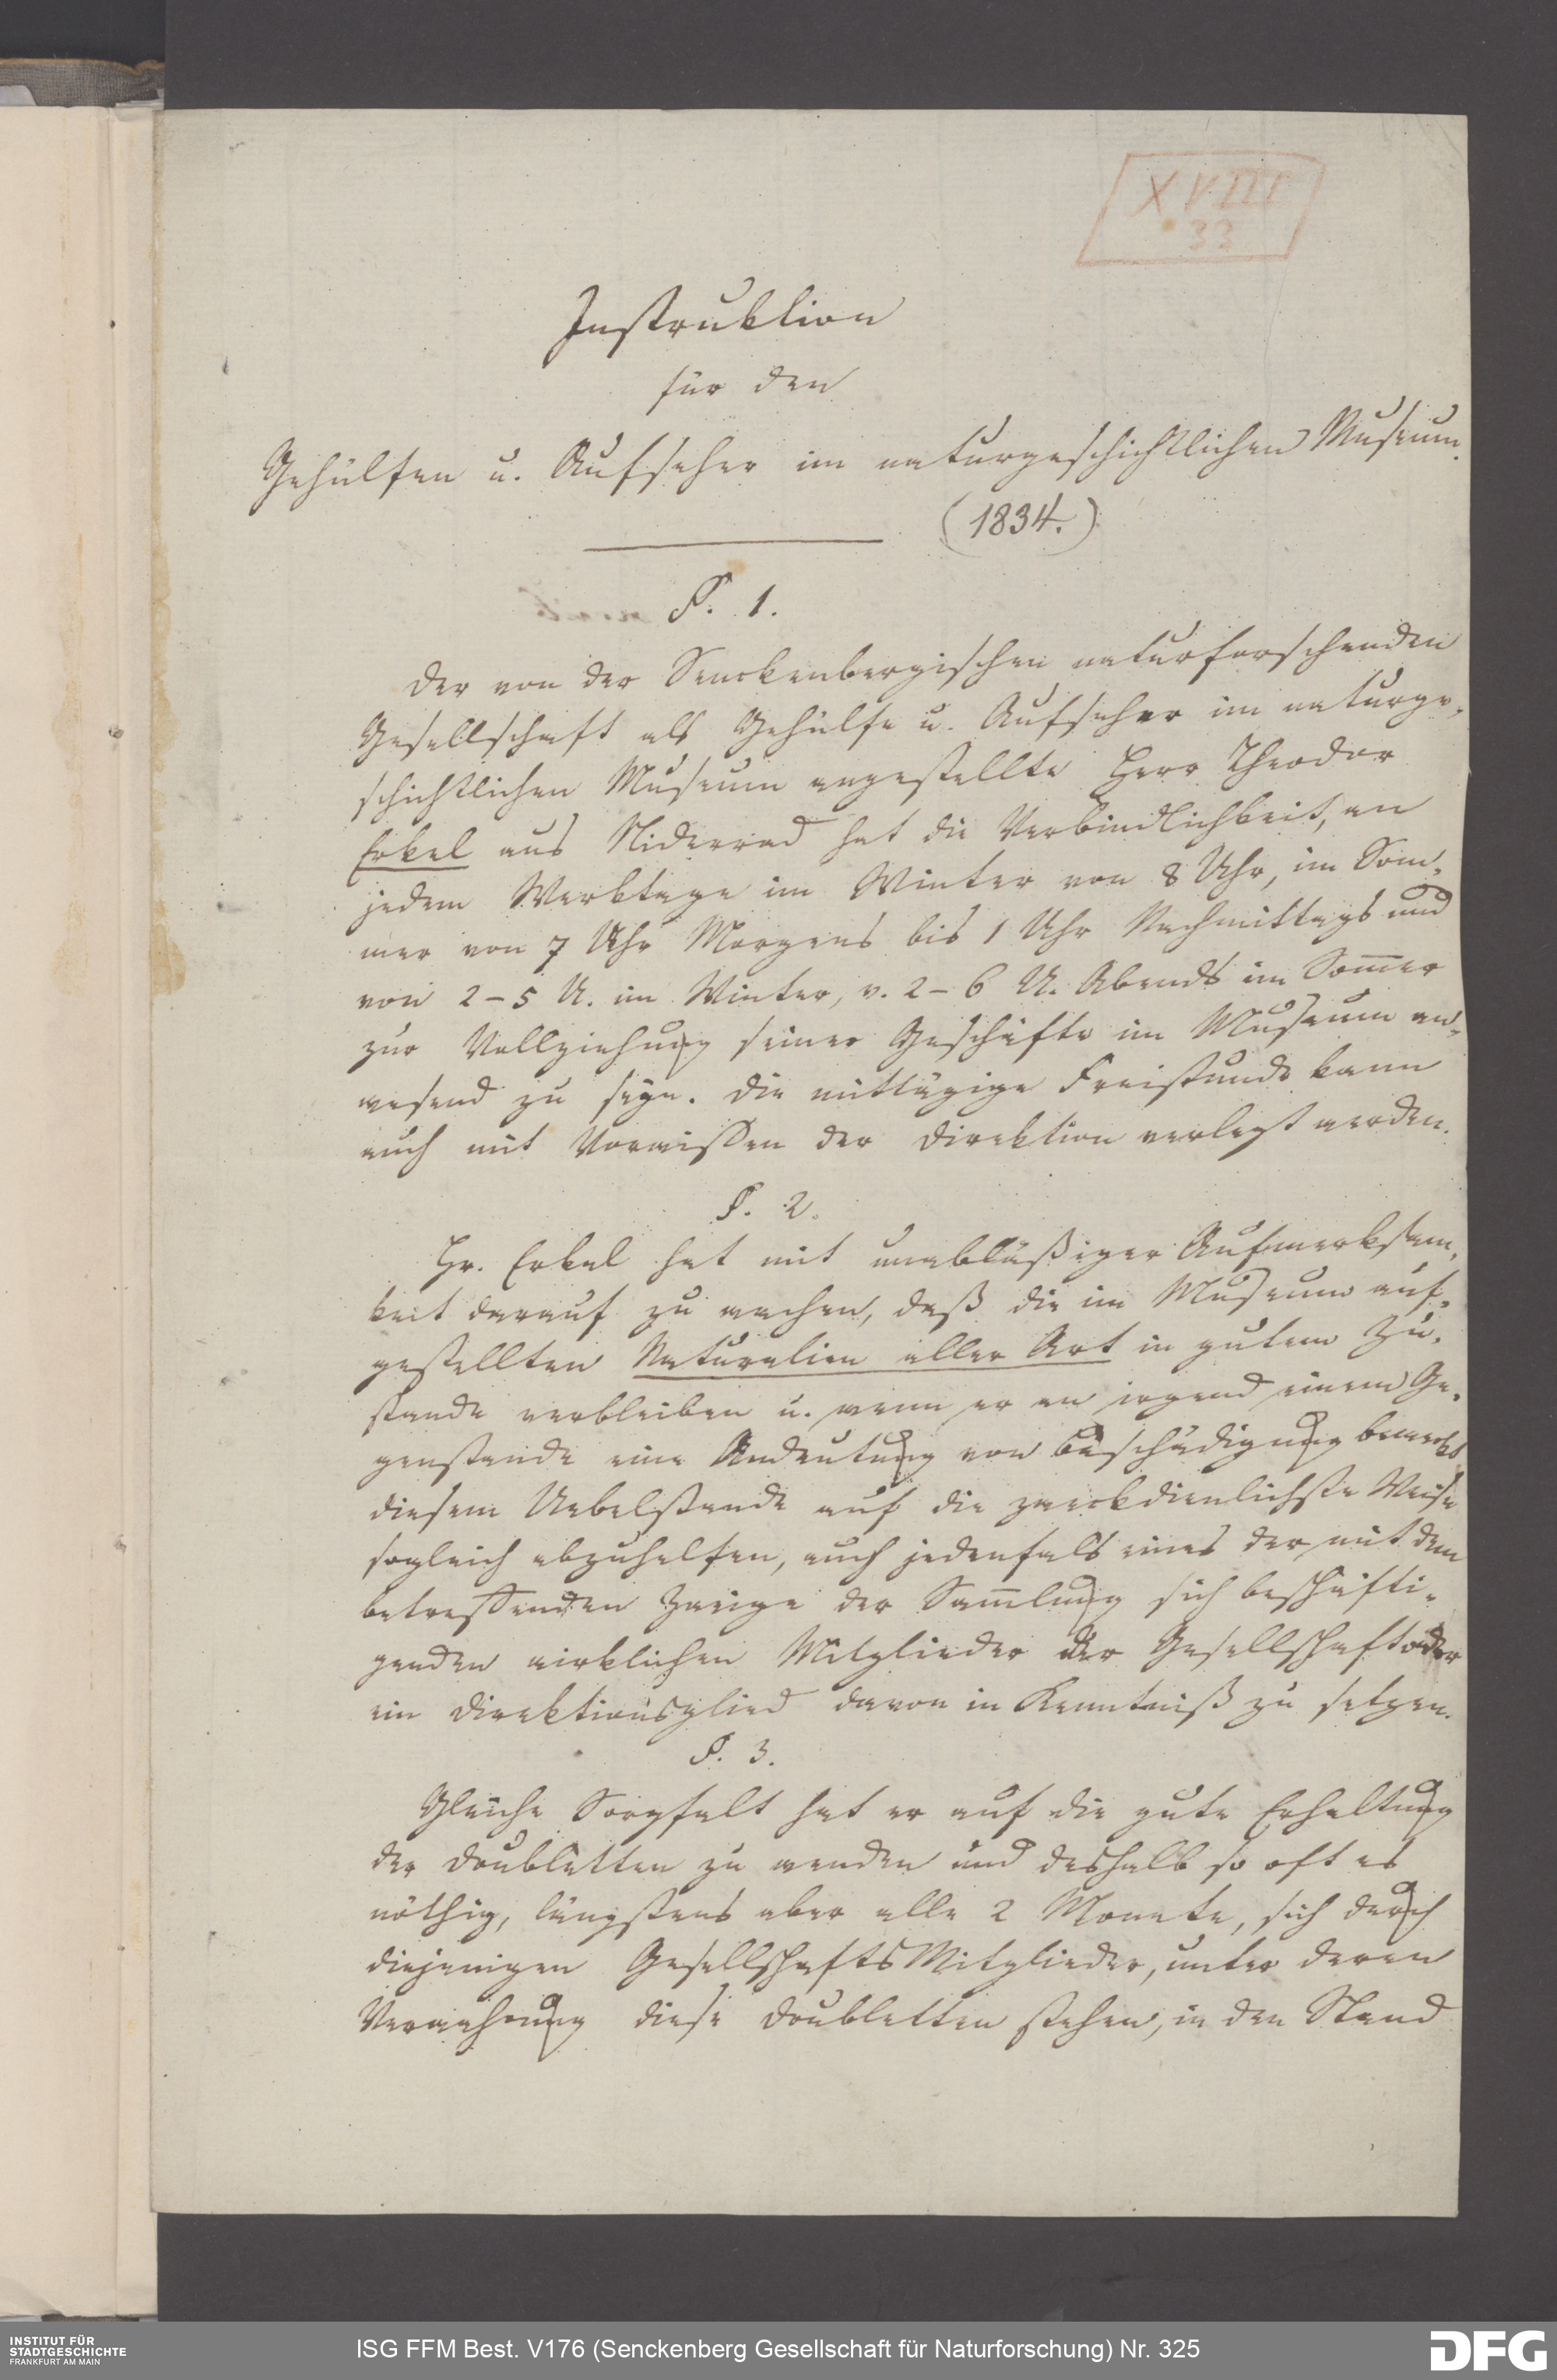 XVIII
33
Instruktion
für den
Gehülfen u. Aufseher im naturgeschichtlichen Museum.
(1834.)
§. 1.
Der von der Senckenbergischen naturforschenden
Gesellschaft als Gehülfe u. Aufseher im naturge-
schichtlichen Museum angestellte Herr Theodor
Erkel aus Niderrad hat die Verbindlichkeit, an
jedem Werktage im Winter von 8 Uhr, im Som-
mer von 7 Uhr Morgens bis 1 Uhr Nachmittags und
von 2-5 U. im Winter, v. 2-6 U. Abends im Sommer
zur Vollziehung seiner Geschäfte im Museum an-
wesend zu seyn. Die mittägige Freistunde kann
auch mit Vorwissen der Direktion verlegt werden.
§. 2.
Hr. Erkel hat mit unabläßiger Aufmerksam-
keit darauf zu wachen, daß die im Museum auf-
gestellten Naturalien aller Art in gutem Zu-
stande verbleiben u. wenn er an irgend einem Ge-
genstande eine Andeutung von Beschädigung bemerkt
diesem Uebelstande auf die zweckdienlichste Weise
sogleich abzuhelfen, auch jedenfals eines der mit dem
betreffenden Zweige der Sammlung sich beschäfti-
genden wirklichen Mitglieder der Gesellschaft oder
ein Direktionsglied davon in Kenntniß zu setzen.
§. 3.
Gleiche Sorgfalt hat er auf die gute Erhaltung
der Doubletten zu wenden und deshalb so oft es
nöthig, längstens aber alle 2 Monate, sich durch
diejenigen Gesellschafts Mitglieder, unter deren
Verwahrung diese Doubletten stehen, in den Stand
INSTITUT FÜR
STADTGESCHICHTE
FRANKFURT AM MAIN
ISG FFM Best. V176 (Senckenberg Gesellschaft für Naturforschung) Nr. 325
DFG